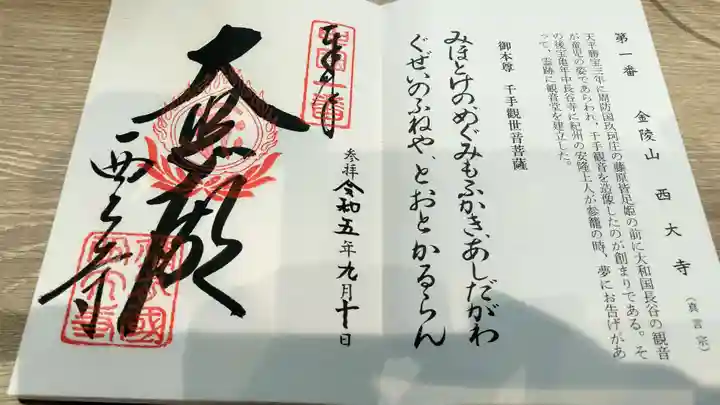 第一番 金陵山 西大寺 (真言宗)
天平勝宝三年に周防国玖珂庄の藤原皆足姫の前に大和国長谷の観音
が童児の姿であらわれ、千手観音を造像したのが創まりである。そ
の後宝亀年中長谷寺に紀州の安隆上人が参籠の時、夢にお告げがあ
って、霊跡に観音堂を建立した。
御本尊 千手観世音菩薩
みほとけの、めぐみもふかき、あしだがわ
ぐぜいのふねや、とおとかるらん
奉拝
参拝 令和五年九月十日
大悲殿
西大寺